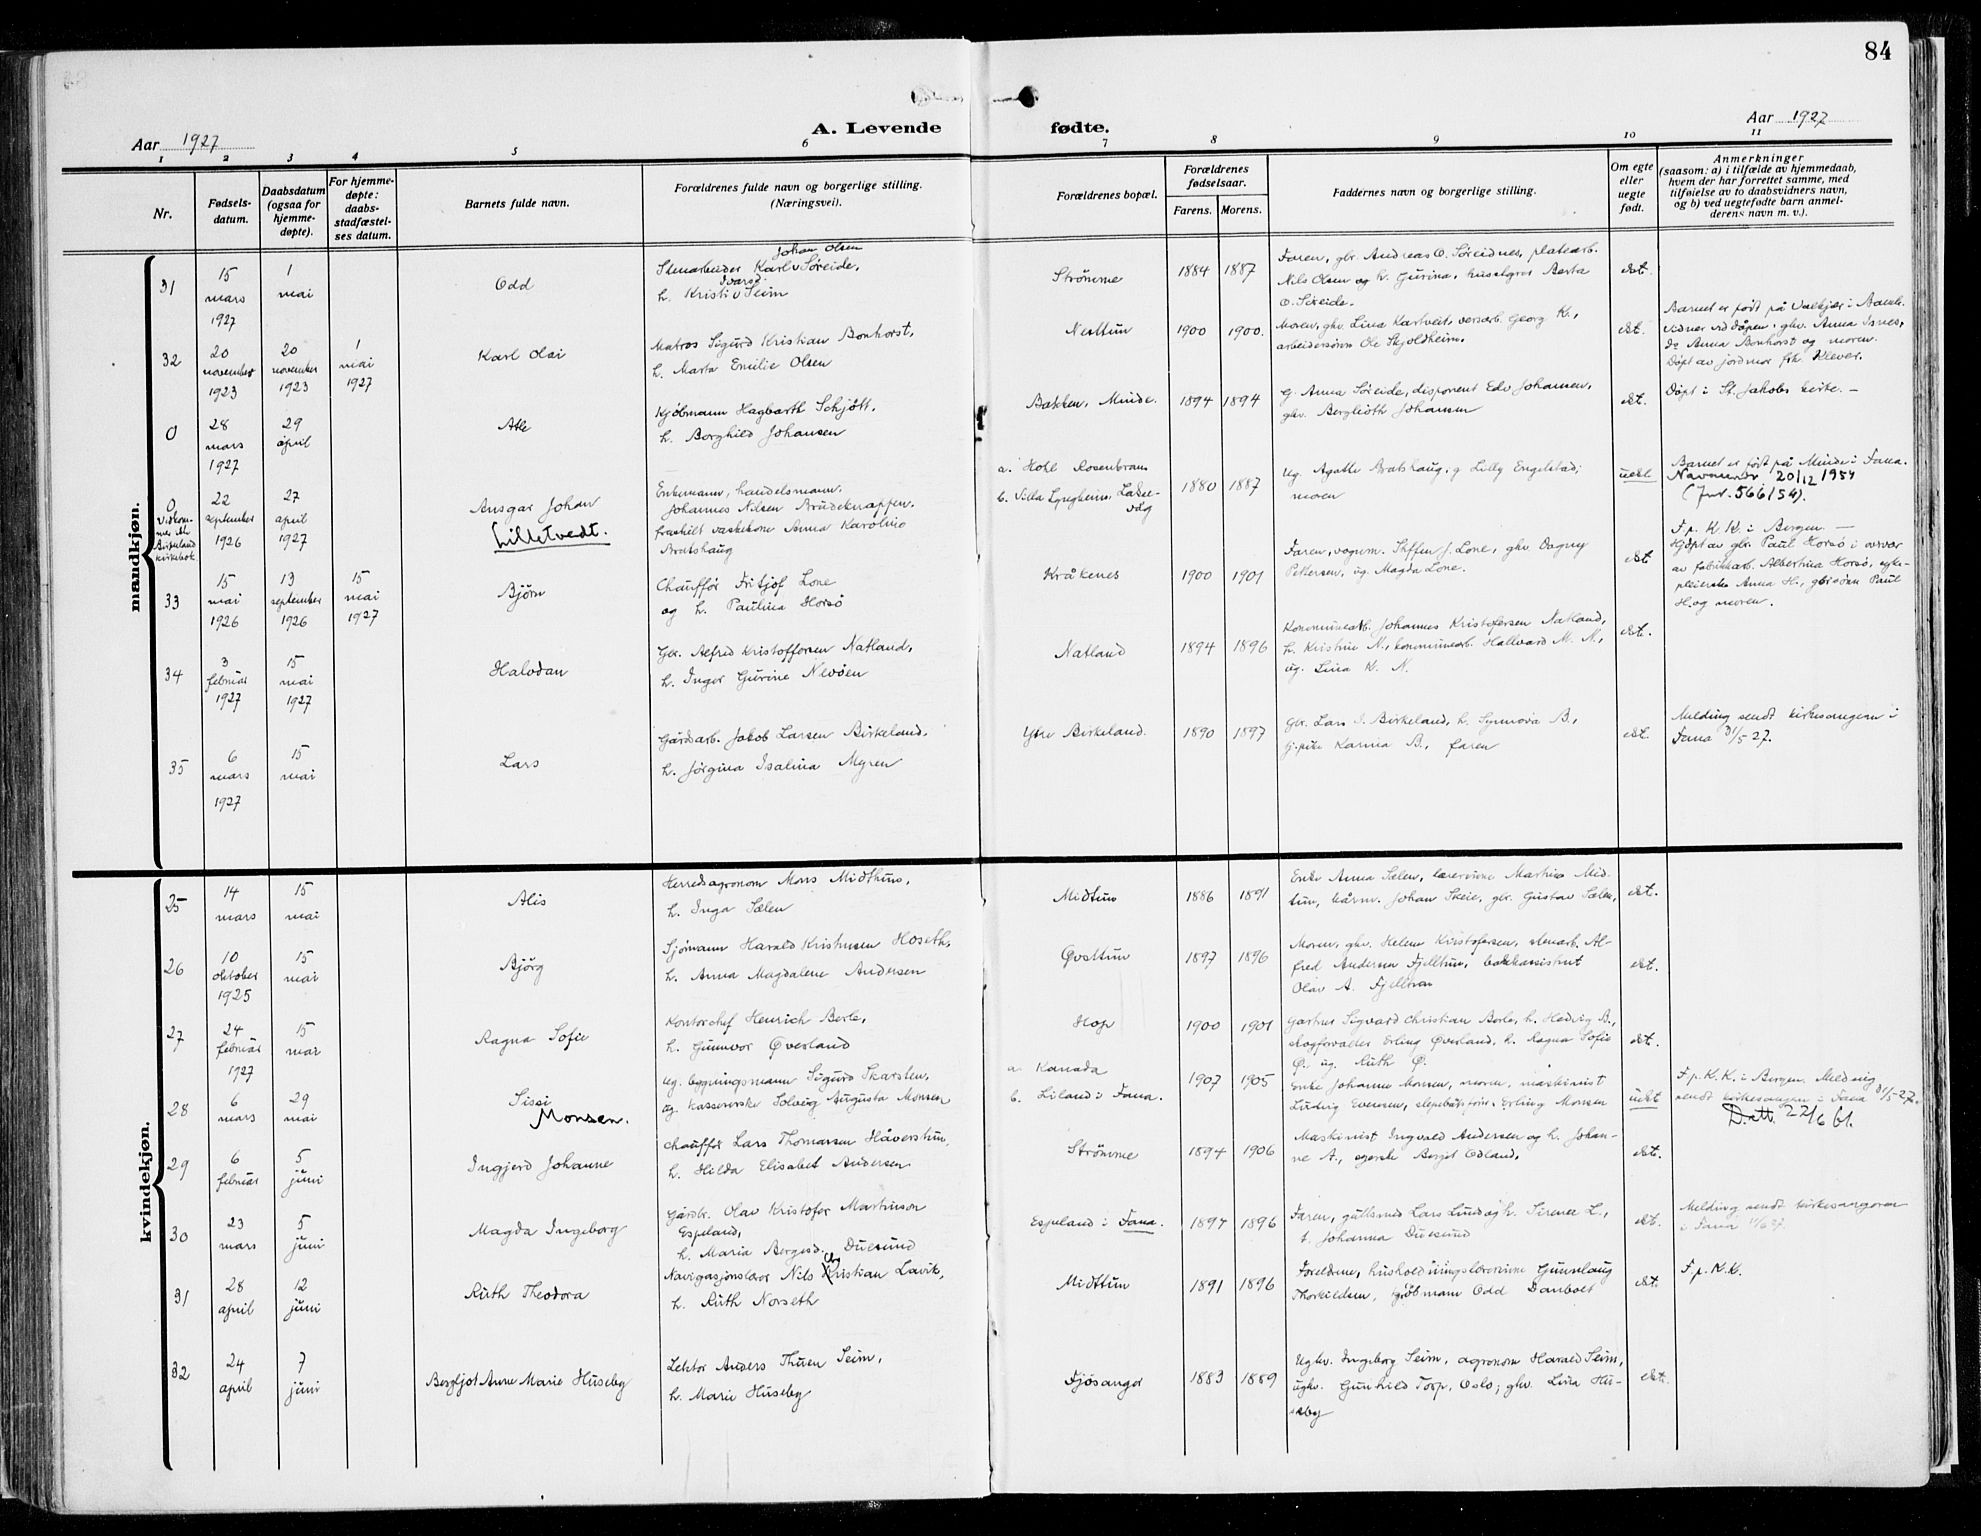 84
A. Levende fødte.
Aar 1927
Aar 1927
1 2 3 4 5 6 7 8 9 10 11
Nr.
Fødsels-
datum.
Daabsdatum
(ogsaa for
hjemme-
døpte).
For hjemme-
døpte:
daabs-
stadfæstel-
ses datum.
Barnets fulde navn.
Forældrenes fulde navn og borgerlige stilling.
(Næringsvei).
Forældrenes bopæl.
Forældrenes
fødselsaar.
Farens. Morens.
Faddernes navn og borgerlige stilling.
Om egte
eller
uegte
født.
Anmerkninger
(saasom: a) i tilfælde av hjemmedaab,
hvem der har forrettet samme, med
tilføielse av to daabsvidners navn,
og b) ved uegtefødte barn anmel-
derens navn m. v.).
mandkjøn.
31
15
mars
1927
1
mai
Odd
Johan Olsen
Stenarbeider Karl v Søreide,
Ivarsd.
h. Kristi v Seim
Strömme
1884 1887
Faren, gbr. Andreas O. Søreidnes, platearb.
Nils Olsen og h. Gurina, Berta
O. Søreide.
ekt.
32
20
november
1923
20
november
1923
1
mai
1927
Karl Olai
Matros Sigurd Kristian Bonhorst,
h. Marta Emilie Olsen
Nesttun
1900 1900.
Moren, ghv. Lina Kartveit, Georg K.,
arbeidersönn Ole Skjoldheim.
ekt.
Barnet er født på i
Vidner ved dåpen: ghv. Anna Isnes,
do Anna Bonhorst og moren.
Döpt av jordmor frk. Klever.
0
28
mars
1927
29
april
Atle
Kjøbmann Hagbarth Schjött,
h. Borghild Johansen
Bakken, Minde.
1894 1894
g. Anna Søreide, disponent Edv Johansen,
ghv. Bergliöth Johansen
ekt.
Döpt i St. Jakobs kirke. -
0
Vidkom-
mer
Birkeland
kirkebok
22
september
1926
27
april
1927
Ansgar Johan
Lilletvedt.
Enkemann, handelsmann,
Johannes Nilsen Brudeknappen,
fraskilt vaskekone Anna Karoline
Bratshaug
a. Hotel Rosenkrans
b. Villa Lyngheim,
1880 1887
ug. Agatte Bratshaug, g Lilly Engelstad;
moren
uekt
Barnet er født på Minde i Fana.
Navnendr 20/12 1954
(Jnr. 566/54).
33
15
mai
1926
13
september
1926
15
mai
1927
Björn
Chauffør Fritjof Lone
og h. Paulina Horsö
Kråkenes
1900 1901
Faren, vognm. Steffen J. Lone, ghv Dagny
Pettersen, ug. Magda Lone.
ekt
F. p. K. K. i Bergen. -
Hjdøpt av gbr. Paul Horsö i nærvær
av fabrikkarb. Albertina Horsö, syke-
pleierske Anna H., gbrsönn Paul
H. og moren.
34
3
februar
1927
15
mai
1927
Halvdan
Gbr. Alfred Kristoffersen Natland,
h. Inger Gurine Nevöen
Natland
1894 1896
Kommunearb. Johannes Kristofersen Natland,
h. Kristine N., kommunearb. Hallvard M. N.,
ug. Lina K. N.
ekt.
35
6
mars
1927
15
mai
Lars
Gårdsarb. Jakob Larsen Birkeland,
h. Jörgina Isalina Myren
Ytre Birkeland.
1890 1897
Gbr. Lars J. Birkeland, h. Synnöva B.,
g.pike Karina B., faren
ekt.
Melding sendt kirkesangeren i
Fana 31/5 27.
kvindekjøn.
25
14
mars
15
mai
Alis
Herredsagronom Mons Midthun,
h. Inga Sælen
Midtun
1886 1891
Enke Anna Sælen, lærerinne Martha Mid-
tun, Johan Skeie, gbr. Gustav Sælen,
ekt.
26
10
oktober
1925
15
mai
Björg
Sjömann Harald Kristensen Hoseth,
h. Anna Magdalene Andersen
Øvsttun
1897 1896
Moren, ghv. Helene Kristofersen, stenarb. Al-
fred Anderna Fjelltun,
Olav A. Fjelltun
ekt.
27
24
februar
1927
15
mai
Ragna Sofie
Kontorchef Henrich Berle,
h. Gunnvor Øverland
Hop
1900 1901
Gartner Sigvard Christian Berle, h. Hedvig B.,
skogforvalter Erling Øverland, h. Ragna Sofie
Ø., ug. Ruth Ø.
ekt.
28
6
mars
29
mai
Sissi
Monsen.
ug. bygningsmann Sigurd Skarsten,
ug. kassererske Solveig Augusta Monsen
a. Kanada
b. Liland i Fana.
1907 1905
Enke Johanne Monsen, moren, maskinist
Ludvig Evensen, Erling Monsen
uekt
F. p. K. K. i Bergen. Melding
sendt kirkesangeren i Fana 31/5-27.
D.att. 22/6 61.
29
6
februar
5
juni
Ingjerd Johanne
Chauffør Lars Thomassen Håverstun,
h. Hilda Elisabet Andersen
Strömme
1894 1906
Maskinist Ingvald Andersen og h. Johan-
ne A., syerske Bergit Odland.
ekt.
30
23
mars
5
juni
Magda Ingeborg
Gårdbr. Olav Kristofer Martinson
Espeland,
h. Maria Bergesd. Duesund
Espeland i Fana.
1897 1896
Faren, gullsmed Lars Lund og h. Sirena L.,
t. Johanna Duesund
ekt.
Melding sendt kirkesangeren
i Fana 11/6 27.
31
28
april
12
juni
Ruth Theodora
Navigasjonslærer Nils Christian Lavik,
h. Ruth Norseth
Midttun
1891 1896
Foreldrene, husholdningslærerinne Gunnlaug
Thorkildsen, kjöbmann Odd Danbolt
ekt.
F. p. K. K.
32
24
april
7
juni
Bergljot Anne Marie Huseby
Lektor Anders Thuen Seim,
h. Marie Huseby
Fjösanger
1883 1889
Ughv. Ingeborg Seim, agronom Harald Seim,
ughv. Gunhild Torp, Oslo; ghv. Lina Hu-
seby
ekt.